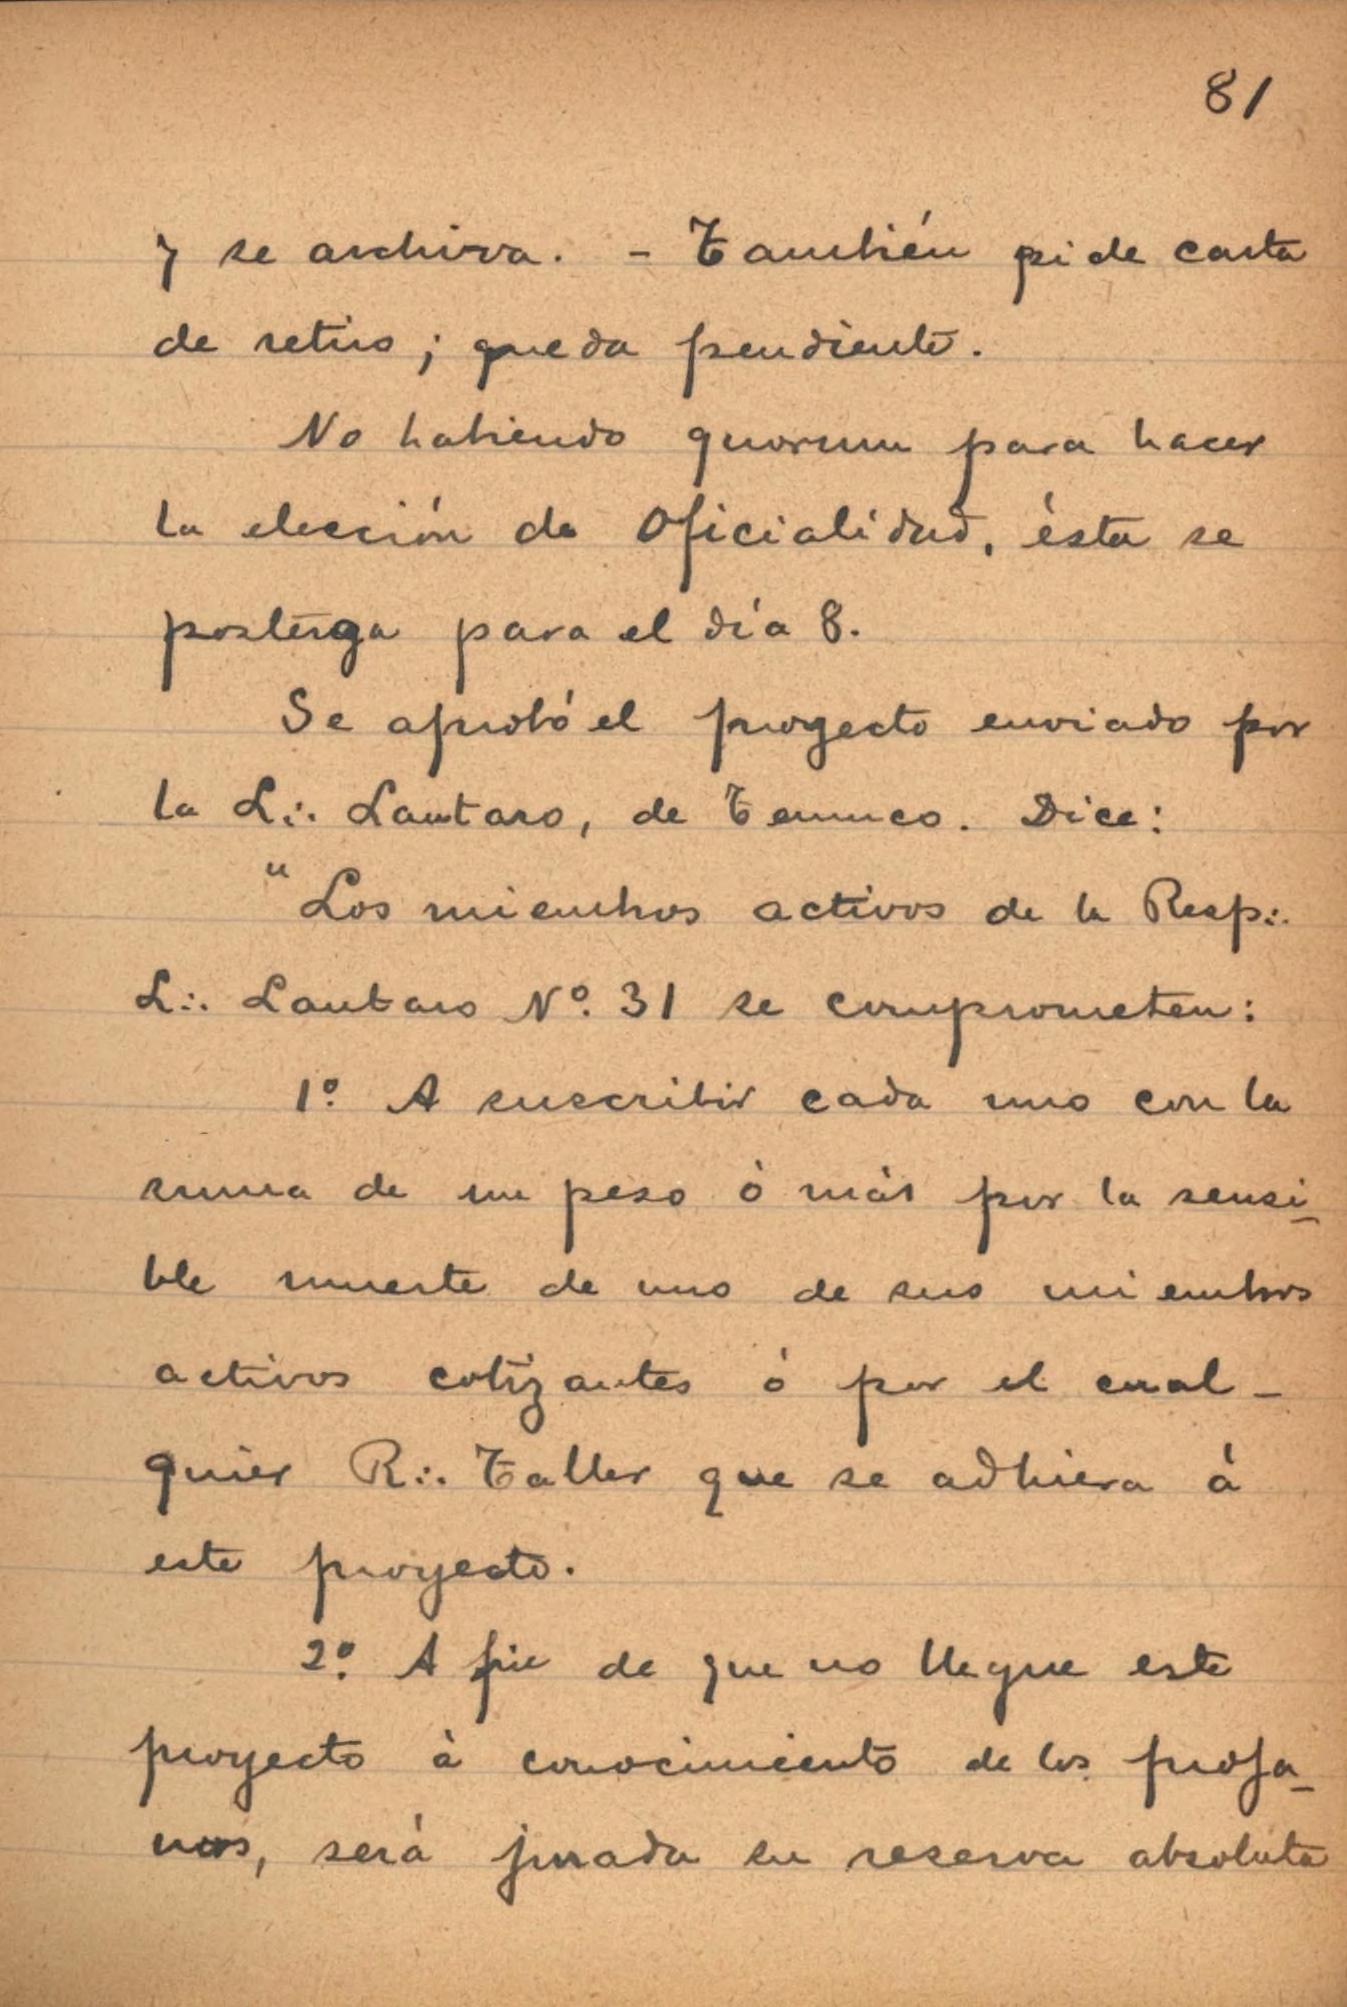 81
y se archiva. - También pide carta
de retiro; queda pendiente.
No habiendo quorum para hacer
la elección de Oficialidad, ésta se
posterga para el día 8.
Se aprobó el proyecto enviado por
la L∴ Lautaro, de Temuco. Dice:
"Los miembros activos de la Resp∴
L∴ Lautaro Nº. 31 se comprometen:
1º. A suscribir cada uno con la
suma de un peso ó más por la sensi-
ble muerte de uno de sus miembros
activos cotizantes ó por el cual-
quier R∴ Taller que se adhiera á
este proyecto.
2º. A fin de que no llegue este
proyecto á conocimiento de los profa-
nos, será jurada su reserva absoluta